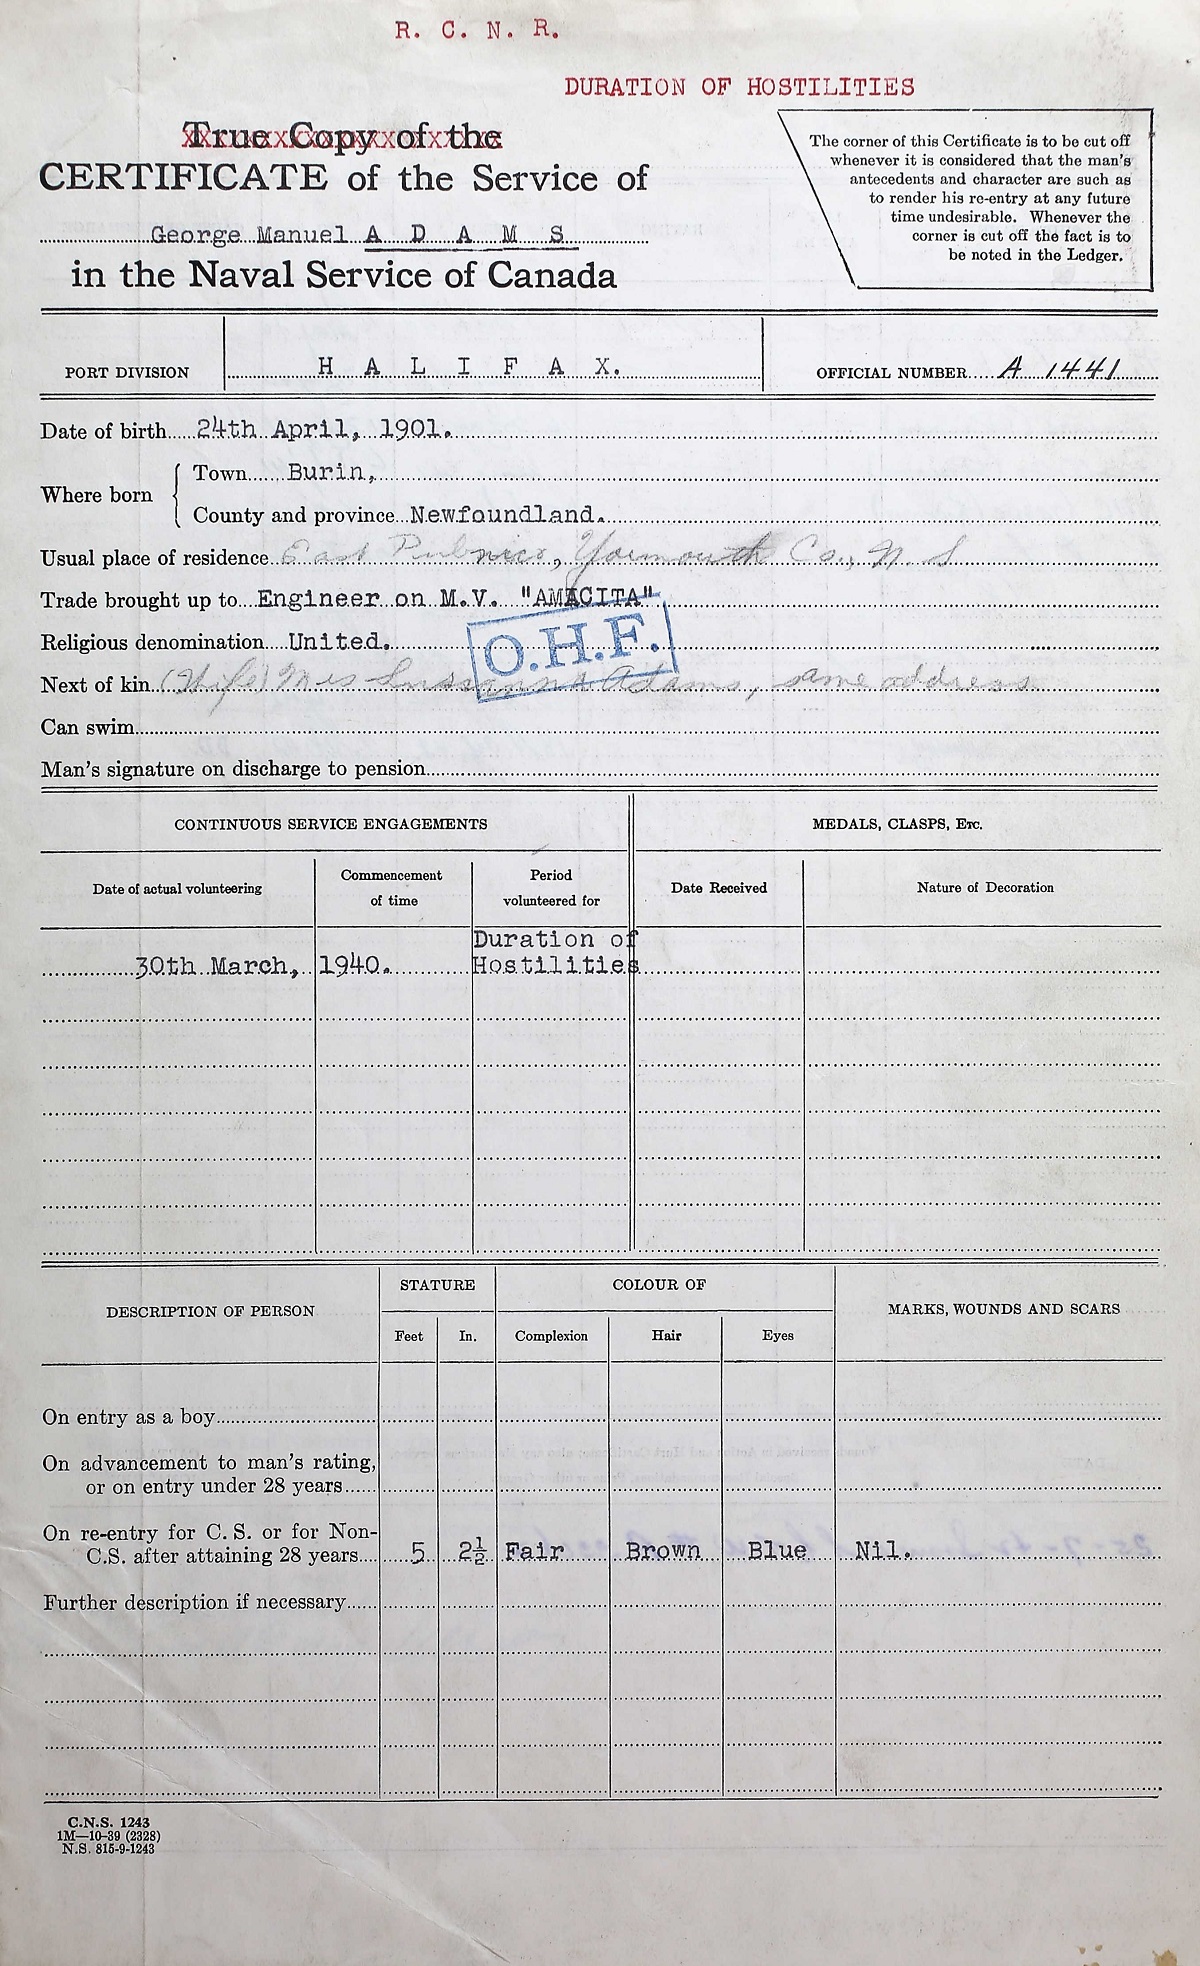 R. C. N. R.
DURATION OF HOSTILITIES
True Copy of the
CERTIFICATE of the Service of
George Manuel A D A M S
in the Naval Service of Canada
The corner of this Certificate is to be cut off
whenever it is considered that the man's
antecedents and character are such as
to render his re-entry at any future
time undesirable. Whenever the
corner is cut off the fact is to
be noted in the Ledger.
PORT DIVISION H A L I F A X. OFFICIAL NUMBER A 1441
Date of birth 24th April, 1901.
Where born
Town Burin,
County and province Newfoundland.
Usual place of residence East Pubnico, Yarmouth Co., N. S
Trade brought up to Engineer on M.V. "AMACITA"
Religious denomination United.
O.H.F.
Next of kin (Wife) Mrs Sussanna Adams, same address
Can swim
Man's signature on discharge to pension
CONTINUOUS SERVICE ENGAGEMENTS MEDALS, CLASPS, ETC.
Date of actual volunteering Commencement of time Period volunteered for Date Received Nature of Decoration
Duration of
30th March, 1940. Hostilities
DESCRIPTION OF PERSON STATURE COLOUR OF MARKS, WOUNDS AND SCARS
Feet In. Complexion Hair Eyes
On entry as a boy
On advancement to man's rating,
or on entry under 28 years
On re-entry for C. S. or for Non-
C.S. after attaining 28 years 5 2½ Fair Brown Blue Nil.
Further description if necessary
C.N.S. 1243
1M—10-39 (2328)
N.S. 815-9-1243